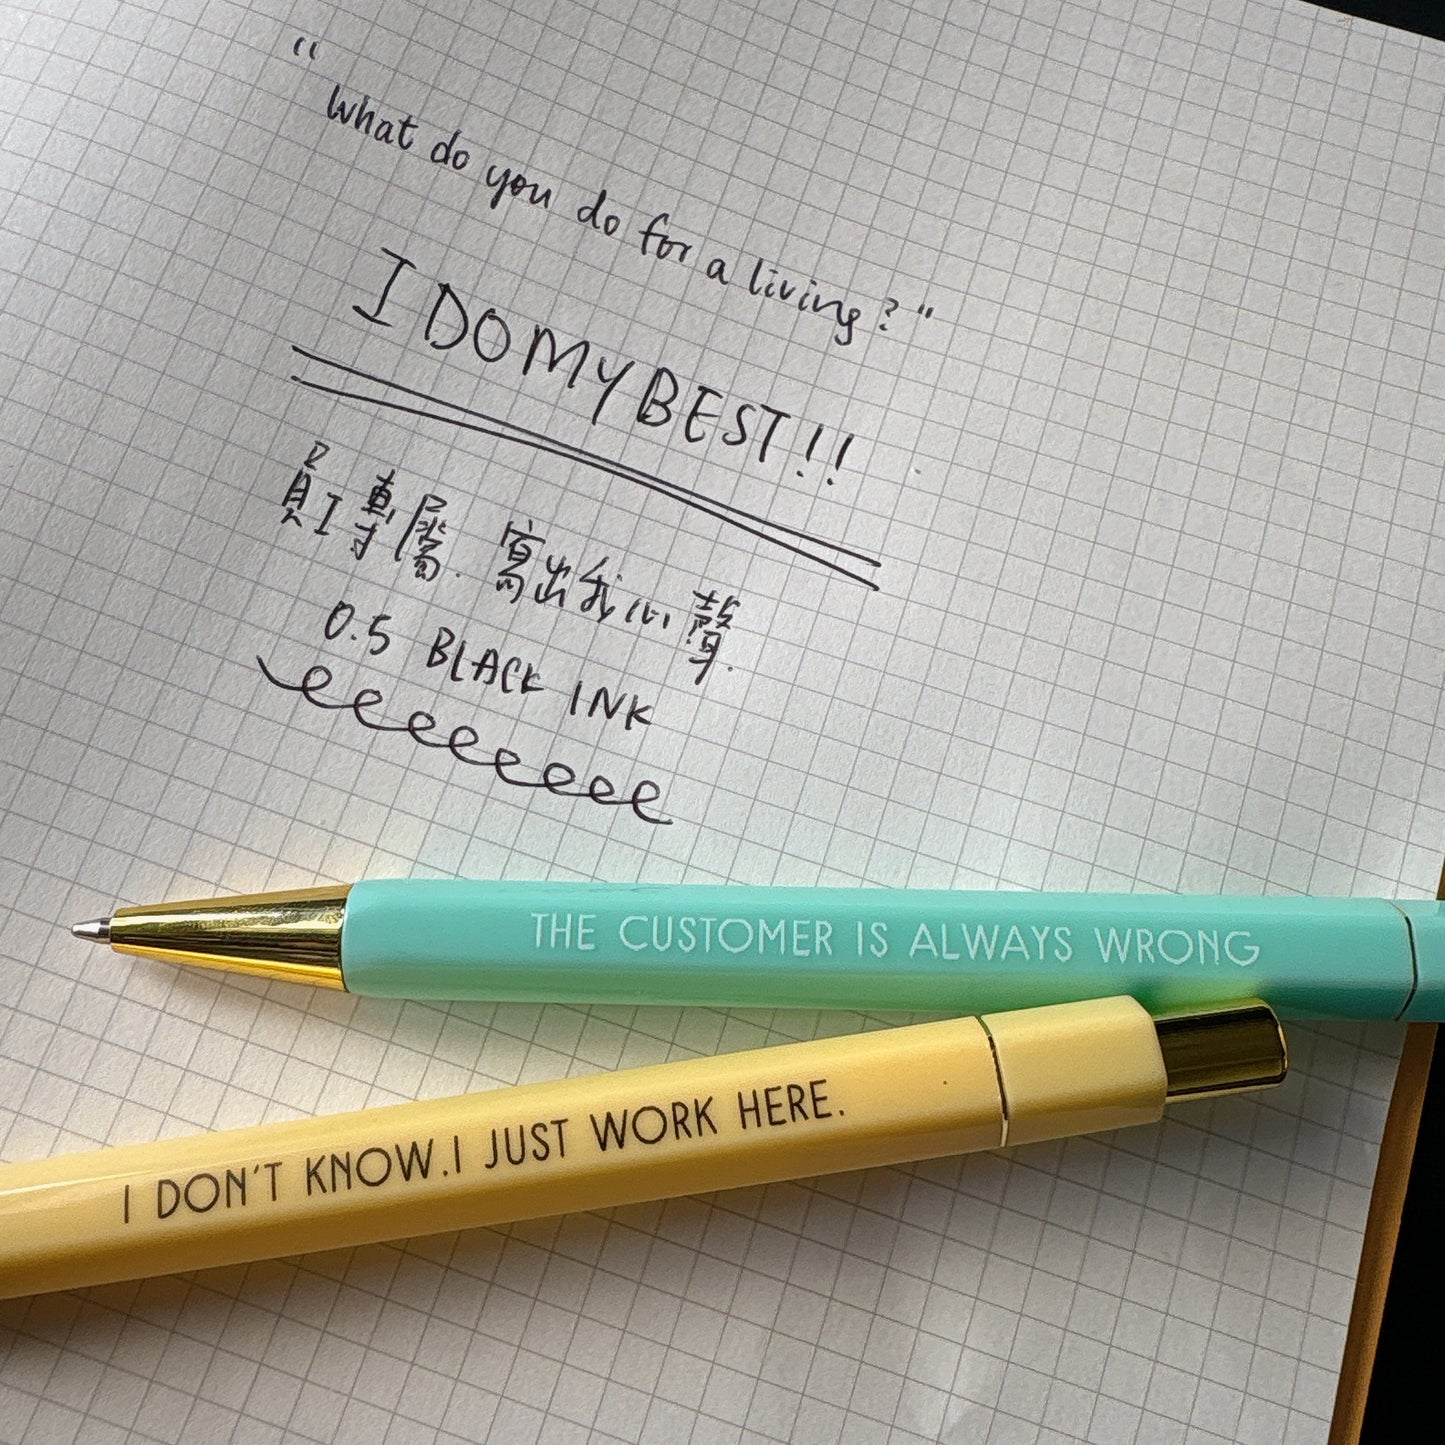 "What do you do for a living?"
I DO MY BEST!!
員工專屬. 寫出我心聲.
0.5 BLACK INK
THE CUSTOMER IS ALWAYS WRONG
I DON'T KNOW.I JUST WORK HERE.